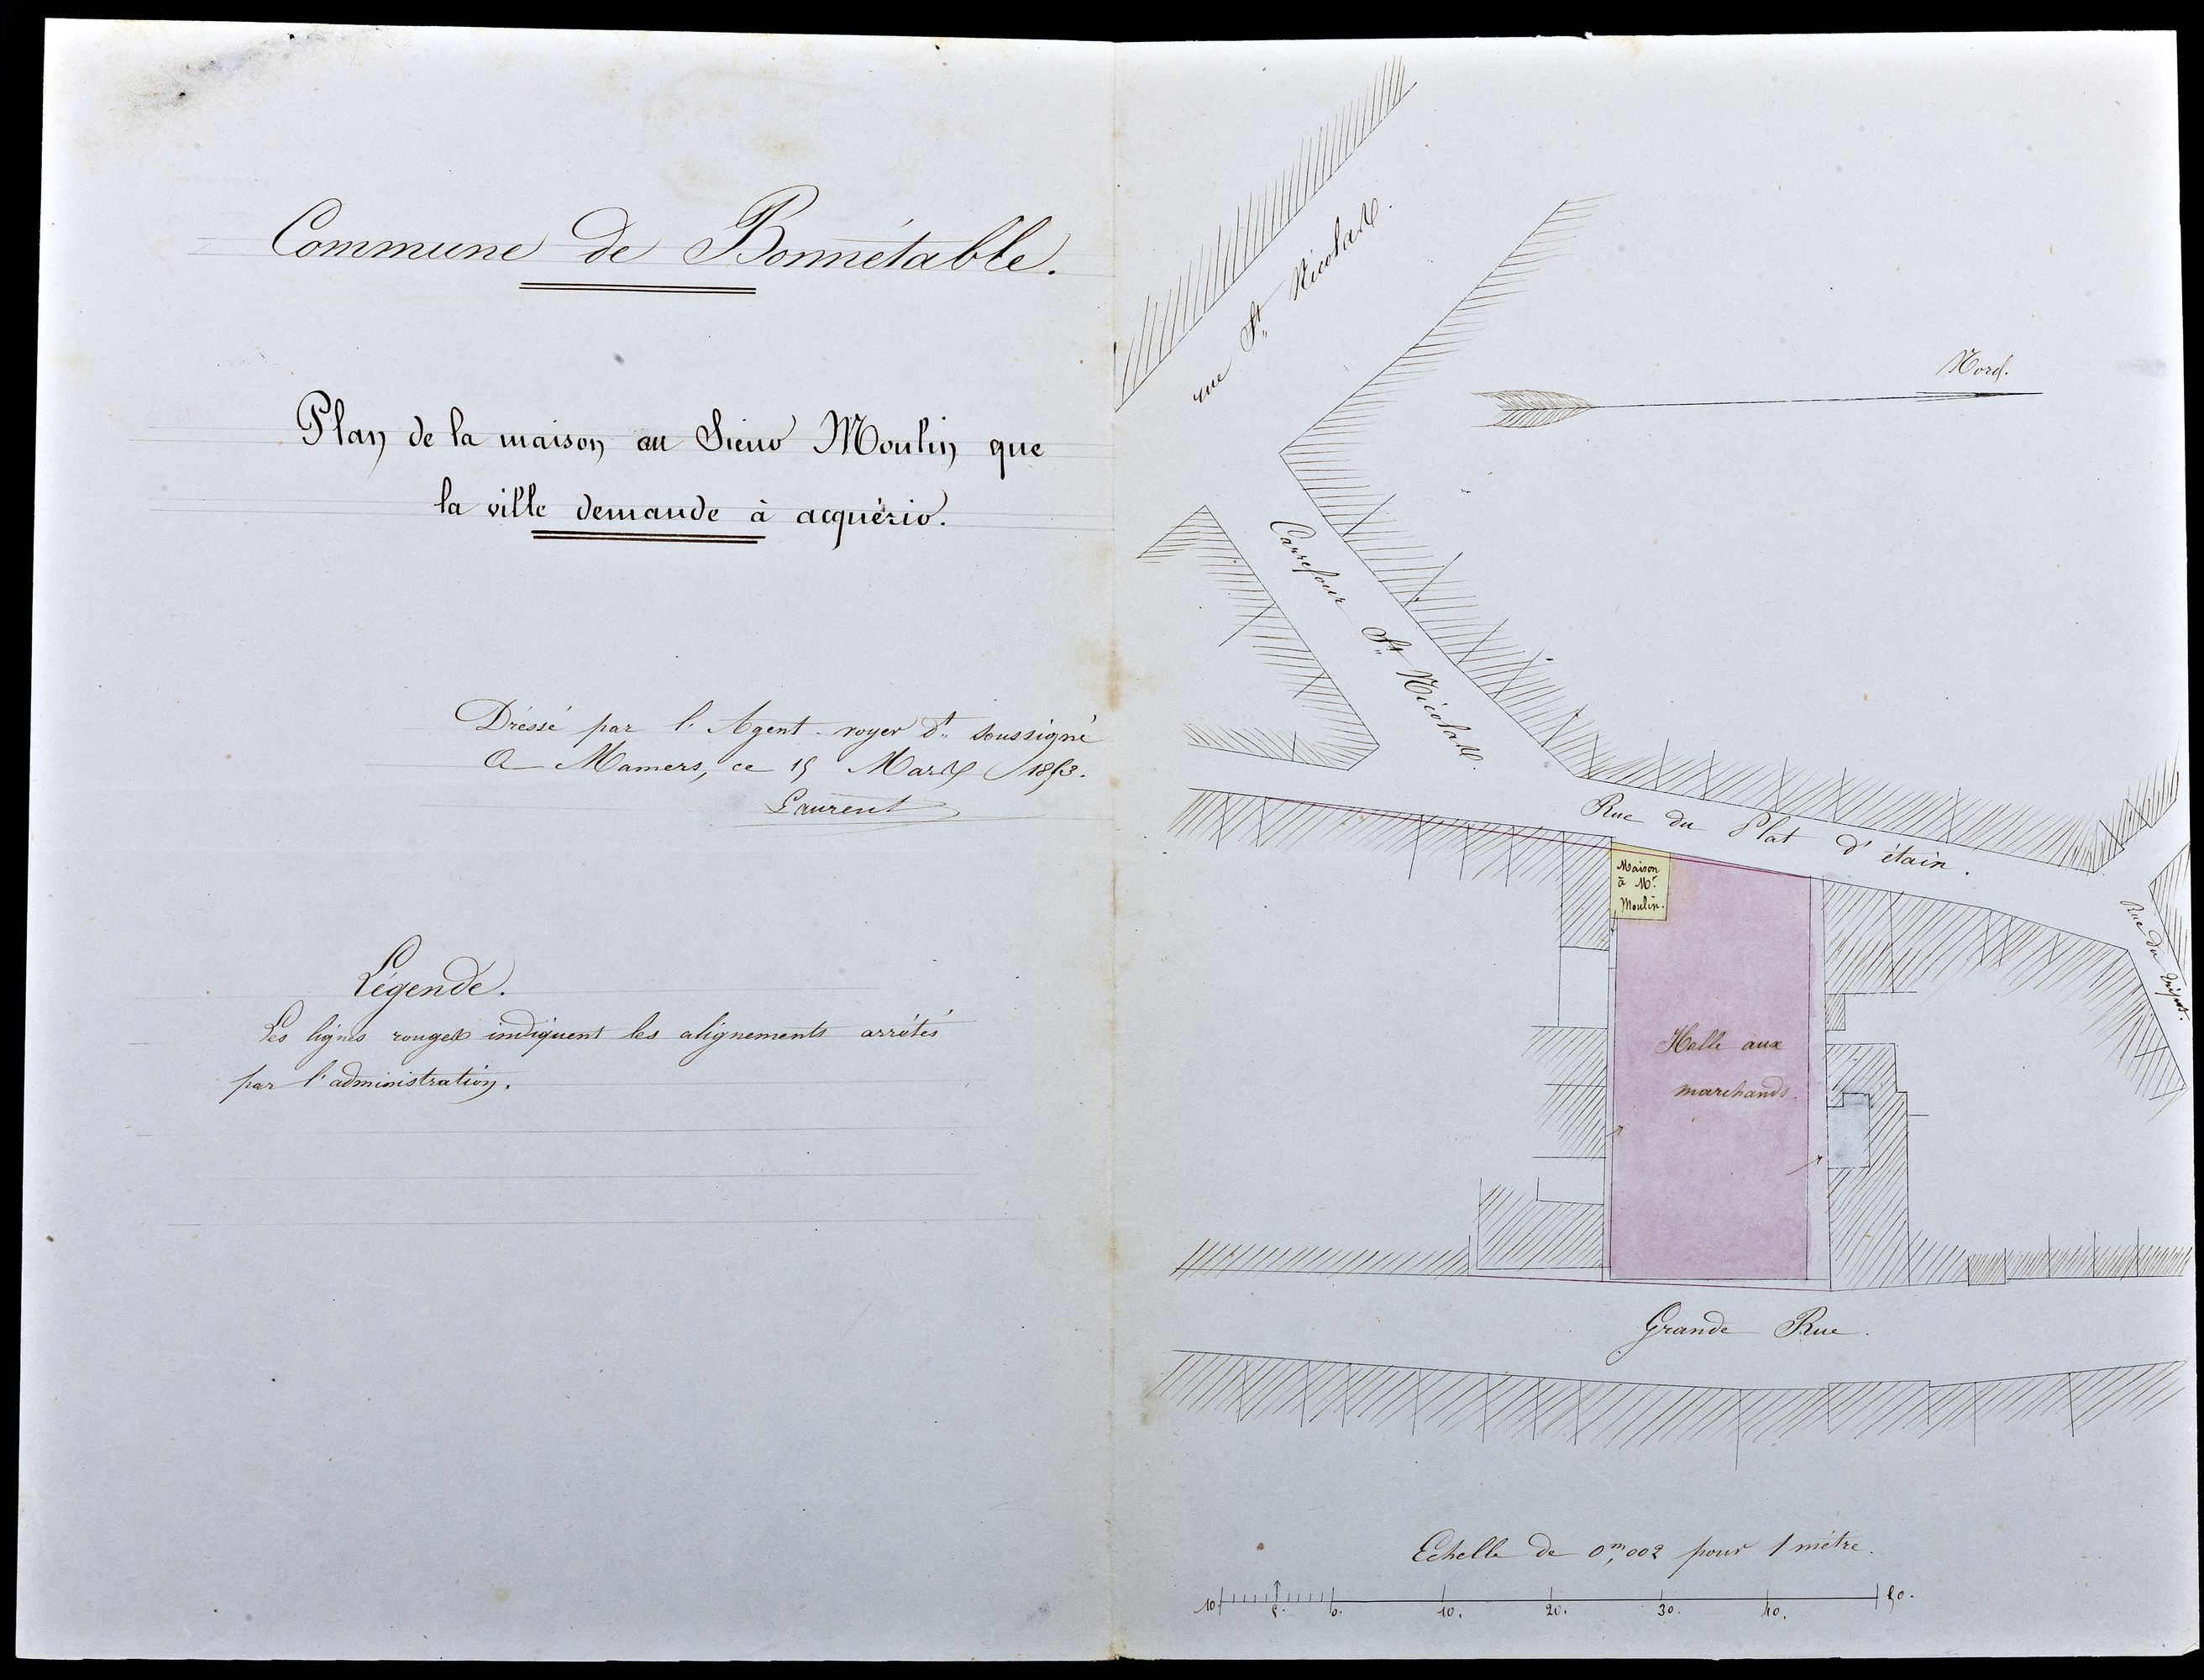 Commune de Bonnétable.
Plan de la maison au Sieur Moulin que
la ville demande à acquérir.
Dréssé par l'Agent-voyer dt soussigné
A Mamers, ce 15 Mars 1853.
Laurent
Légende.
Les lignes rouges indiquent les alignements arrêtés
par l'administration.
rue St Nicolas.
Nord.
Carrefour St Nicolas.
Rue du Plat d'étain.
Maison
à Mr
Moulin.
Rue du
Halle aux
marchands.
Grande Rue.
Echelle de 0m,002 pour 1 mètre.
10 5. 0. 10. 20. 30. 40. 50.